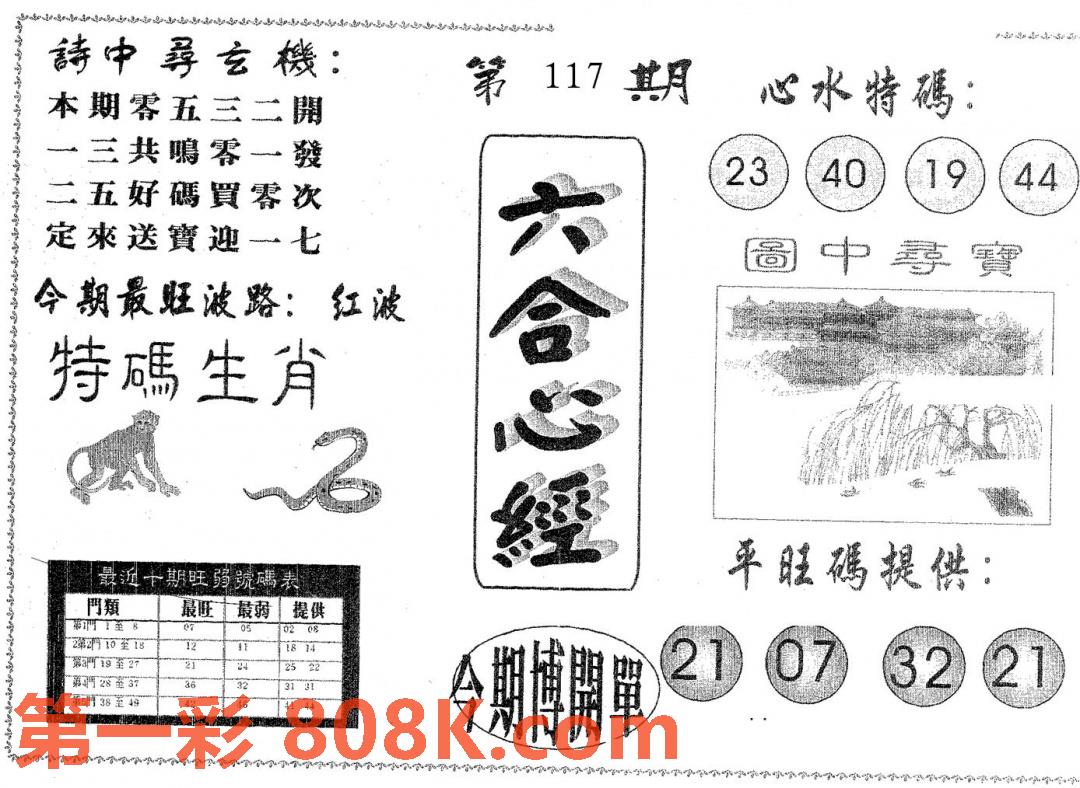 詩中尋玄機：
本期零五三二開
一三共鳴零一發
二五好碼買零次
定來送寶迎一七
今期最旺波路：红波
特碼生肖
最近十期旺弱號碼表
門類 最旺 最弱 提供
第1門 1至8 07 05 02 08
2第2門 10至18 12 11 18 14
第3門 19至27 21 24 25 22
第4門 28至37 36 32 31 31
第5門 38至49
第117期
六合心經
今期博開單
心水特碼：
23 40 19 44
圖中尋寶
平旺碼提供：
21 07 32 21
第一彩 808K.com